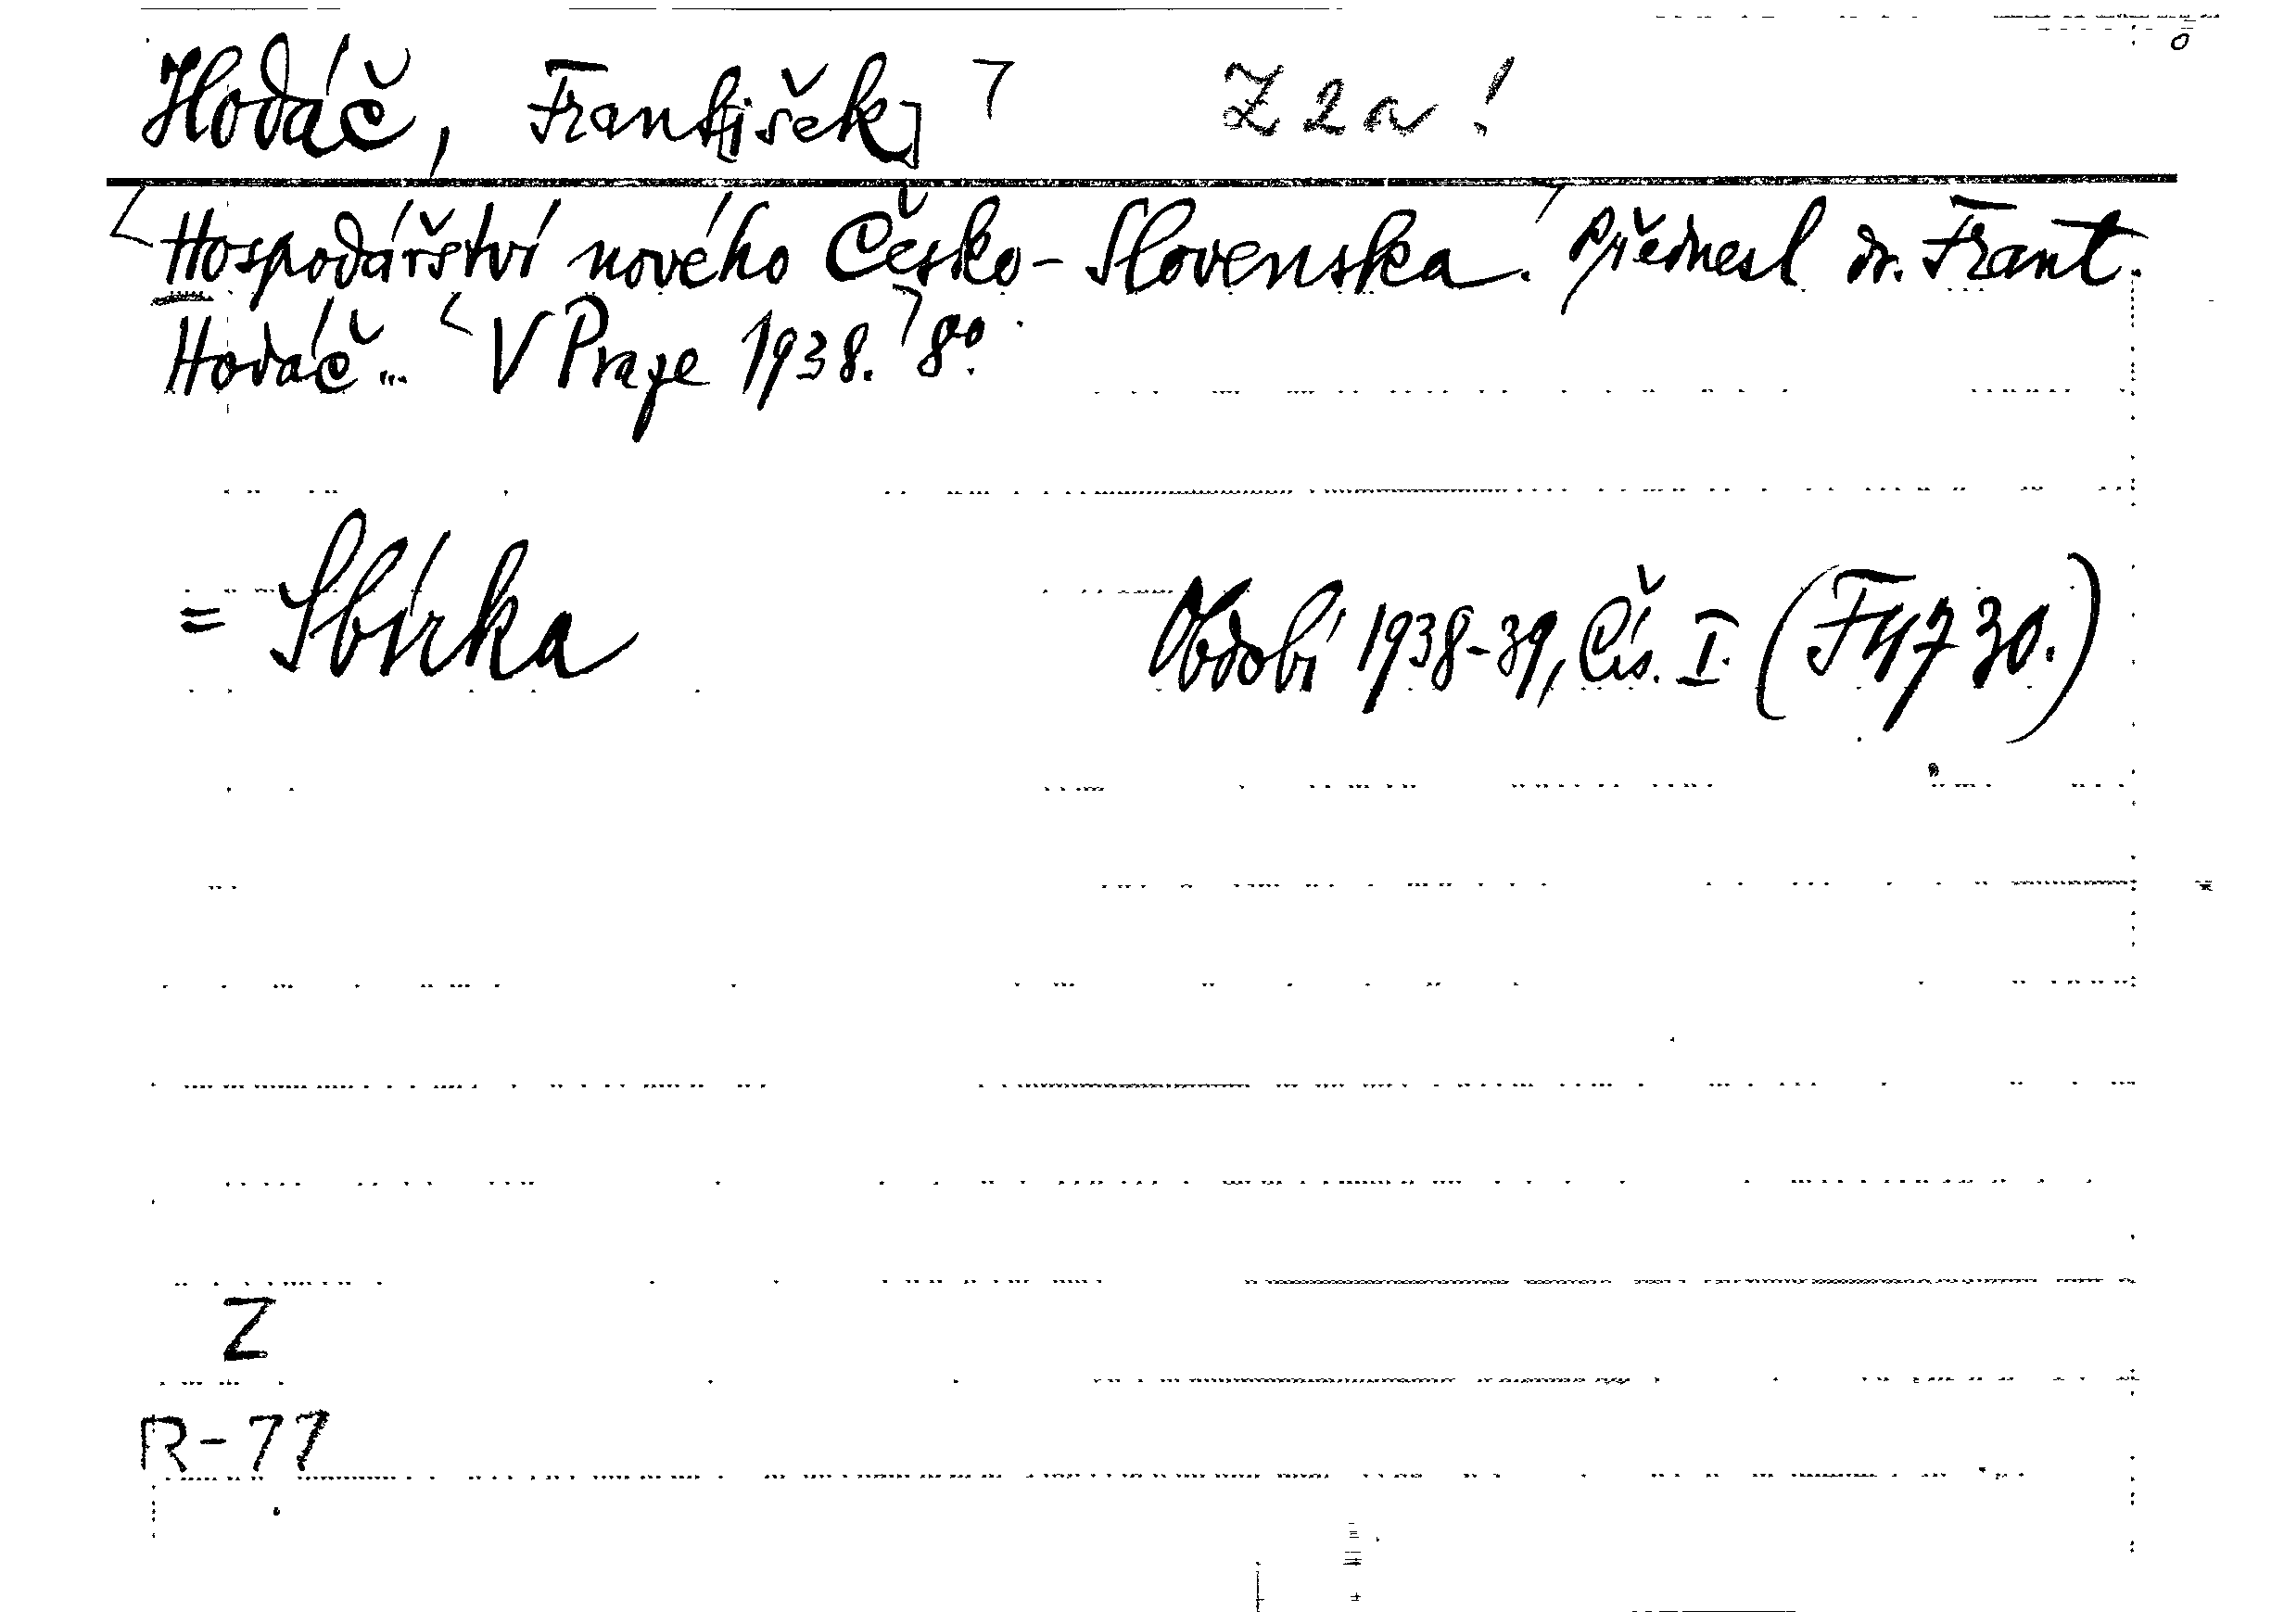 Hodáč, František Z 2 a !
Hospodářství nového Česko-Slovenska. Přednesl dr. Frant.
Hodáč... V Praze 1938. 8º.
= Sbírka Období 1938-39, Čís. I. (F4730.)
Z
R-77